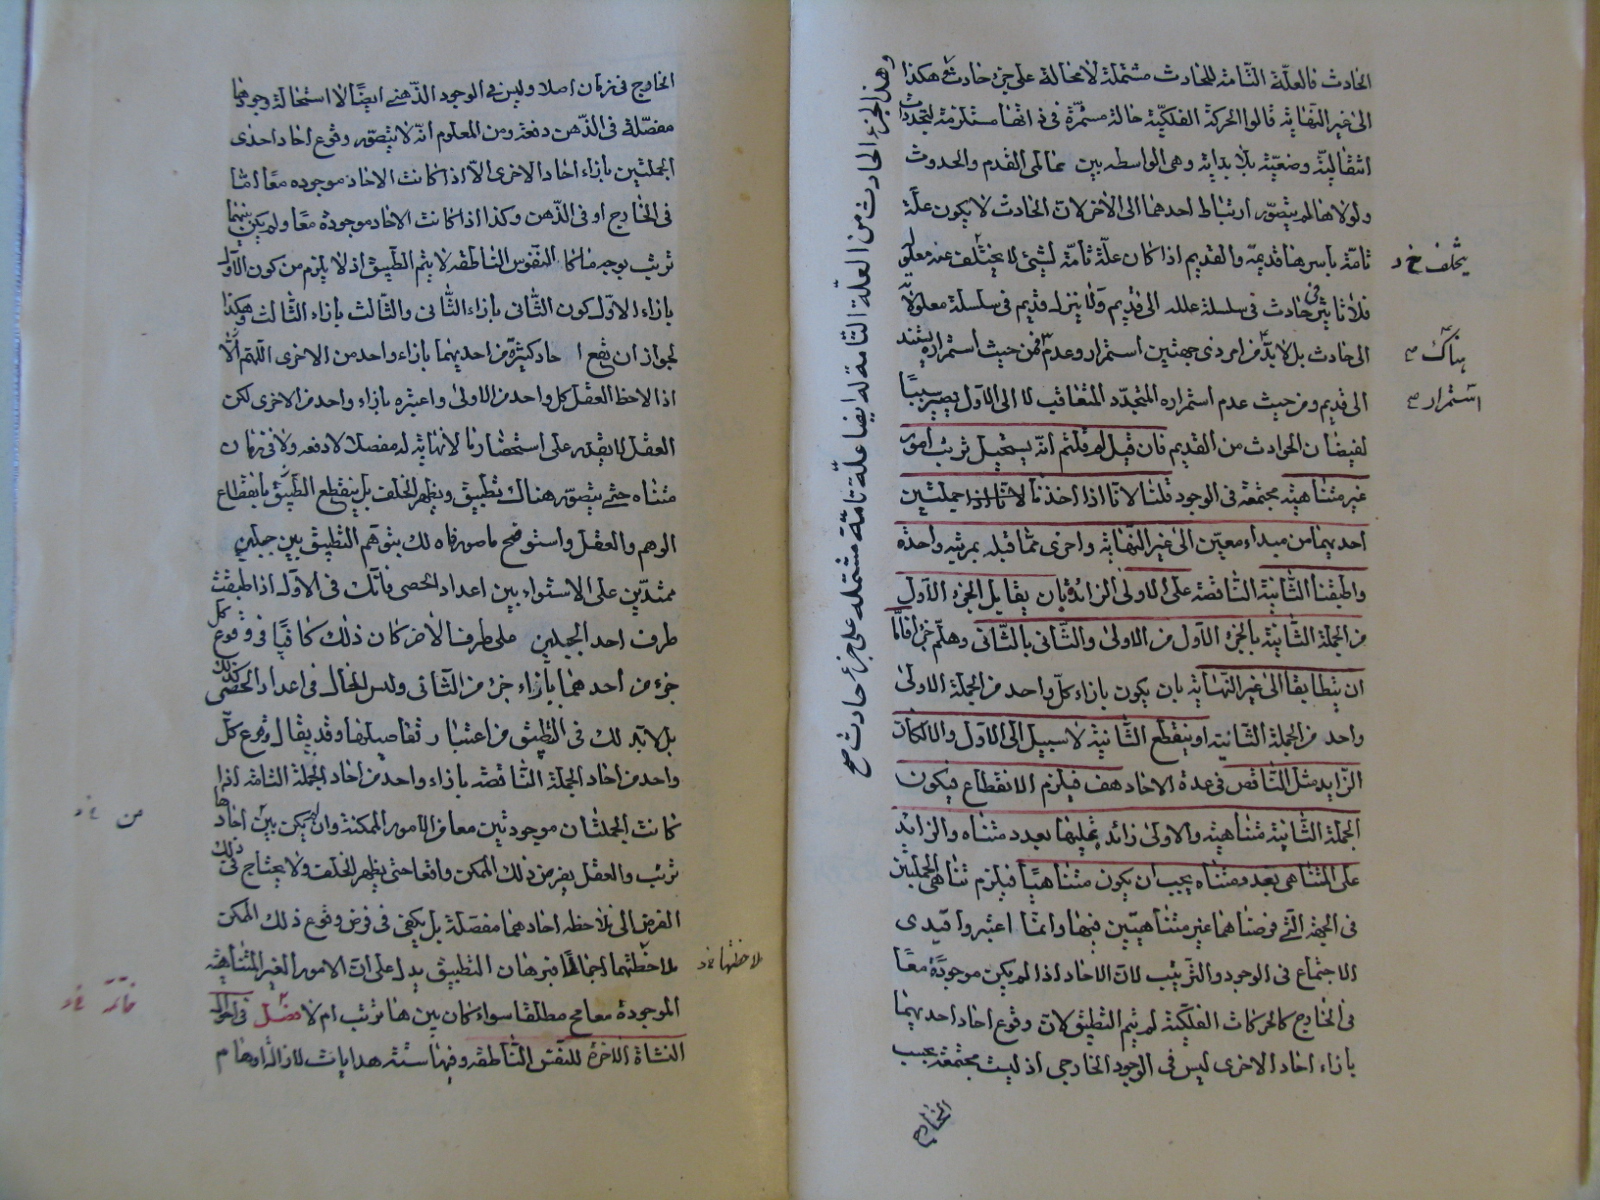 الحادث فالعلّة التّامّة للحادث مشتملة لا محالة على جزء حادث هكذا
الى غير النّهاية قالوا الحركة الفلكيّة حالة مستمرّة فى ذاتها مستلزمة لتجددات
انتقاليّة وضعيّة بلا بداية وهى الواسطه بين عالمى القدم والحدوث
ولولاها لم يتصوّر ارتباط احدهما الى الآخر لانّ الحادث لا يكون علّة
تامّة باسرها قديمة والقديم اذا كان علّة تامّة لشيئ لا يختلف عنه معلوله
فلا تاثير فى حادث فى سلسلة علله الى قديم ولا ينزل قديم فى سلسلة معلولاته
الى حادث بل لا بدّ من امر ذى جهتين استمرار وعدمه فمن حيث استمراره يستند
الى قديم ومن حيث عدم استمراره المتجدّد المتعاقب لا الى الاوّل يصير سببًا
لفيضان الحوادث من القديم فان قيل لم قلتم انّه يستحيل ترتّب امور
غير متناهية مجتمعة فى الوجود قلنا لانّا اذا اخذنا جملتين
احديهما من مبداء معيّن الى غير النّهاية واخرى ممّا قبله بمرتبة واحدة
واطبقنا الثّانية النّاقصة على الاولى الزائدة بان يقابل الجزء الاوّل
من الجملة الثّانية بالجزء الاوّل من الاولى والثّانى بالثّانى وهلّم جرّا فامّا
ان يتطابقا الى غير النّهاية بان يكون بازاء كلّ واحد من الجملة الاولى
واحد من الجملة الثّانية او ينقطع الثّانية لا سبيل الى الاوّل والّا لكان
الزّايد مثل النّاقص فى عدة الاحاد هف فيلزم الانقطاع فيكون
الجملة الثّانية متناهية والاولى زائد عليها بعدد متناه والزائد
على المتناهى بعدد متناه يجب ان يكون متناهيًا فيلزم تناهى الجملتين
فى الجهة الّتى فرضناهما غير متناهيتين فيها وانّما اعتبروا قيدى
الاجتماع فى الوجود والتّرتيب لانّ الاحاد اذا لم يكن موجودة معًا
فى الخارج كالحركات الفلكيّة لم يتم التّطبيق لانّ وقوع احاد احديهما
بازاء احاد الاخرى ليس فى الوجود الخارجى اذ ليست مجتمعة بحسب
الخارج
يتخلف خ د
هناك ص
استمرار ص
وهذا الجزء الحادث من العلّة التّامة له ايضا علّة تامّة مشتمله على جزء حادث صح
الخارج فى زمان اصلا وليس فى الوجود الذّهنى ايضًا لاستحالة وجودها
مفصّلة فى الذّهن دفعة ومن المعلوم انّه لا يتصوّر وقوع احاد احدى
الجملتين بازاء احاد الاخرى الّا اذا كانت الاحاد موجوده معًا امّا
فى الخارج او فى الذّهن وكذا اذا كانت الاحاد موجودة معًا ولم يكن بينهما
ترتب بوجه ما كالنفوس النّاطقه لا يتم التّطبيق اذ لا يلزم من كون الاوّل
بازاء الاوّل كون الثّانى بازاء الثّانى والثّالث بازاء الثّالث وهكذا
لجواز ان يقع احاد كثيرة من احديهما بازاء واحد من الاخرى اللّهم الّا
اذا لاحظ العقل كل واحد من الاولى واعتبره بازاء واحد من الاخرى لكن
العقل لا يقدر على استحضار ما لا نهاية له مفصلا لا دفعه ولا فى زمان
متناه حتّى يتصوّر هناك تطبيق ويظهر الخلف بل ينقطع التّطبيق بانقطاع
الوهم والعقل واستوضح ما صورناه لك بتوهّم التّطبيق بين جبلين
ممتدّين على الاستواء بين اعداد الحصى فانّك فى الاوّل اذا طبقت
طرف احد الجبلين على طرف الآخر كان ذلك كافيًا فى وقوع كل
جزء من احدهما بازاء جزء من الثّانى وليس الحال فى اعداد الحصى كذلك
بل لا بد لك فى التّطبيق من اعتبار تفاصيلها وقد يقال وقوع كلّ
واحد من احاد الجملة النّاقصة بازاء واحد من احاد الجملة التّامّة اذا
كانت الجملتان موجودتين معا من الامور الممكنة وان لم يكن بين احادها
ترتّب والعقل يفرض ذلك الممكن واقعا حتى يظهر الخلف ولا يحتاج فى ذلك
الفرض الى ملاحظة احادهما مفصّلة بل يكفى فى فرض وقوع ذلك الممكن
ملاحظتهما اجمالا فبرهان التّطبيق يدل على انّ الامور الغير المتناهية
الموجودة معا مح مطلقا سواء كان بينها ترتّب ام لا فصل فى احوال
النشاة الآخرة للنّفس النّاطقه وفيها ستّة هدايات لازالة اوهام
من خ د
ملاحظتها خ د
خاتمة خ د